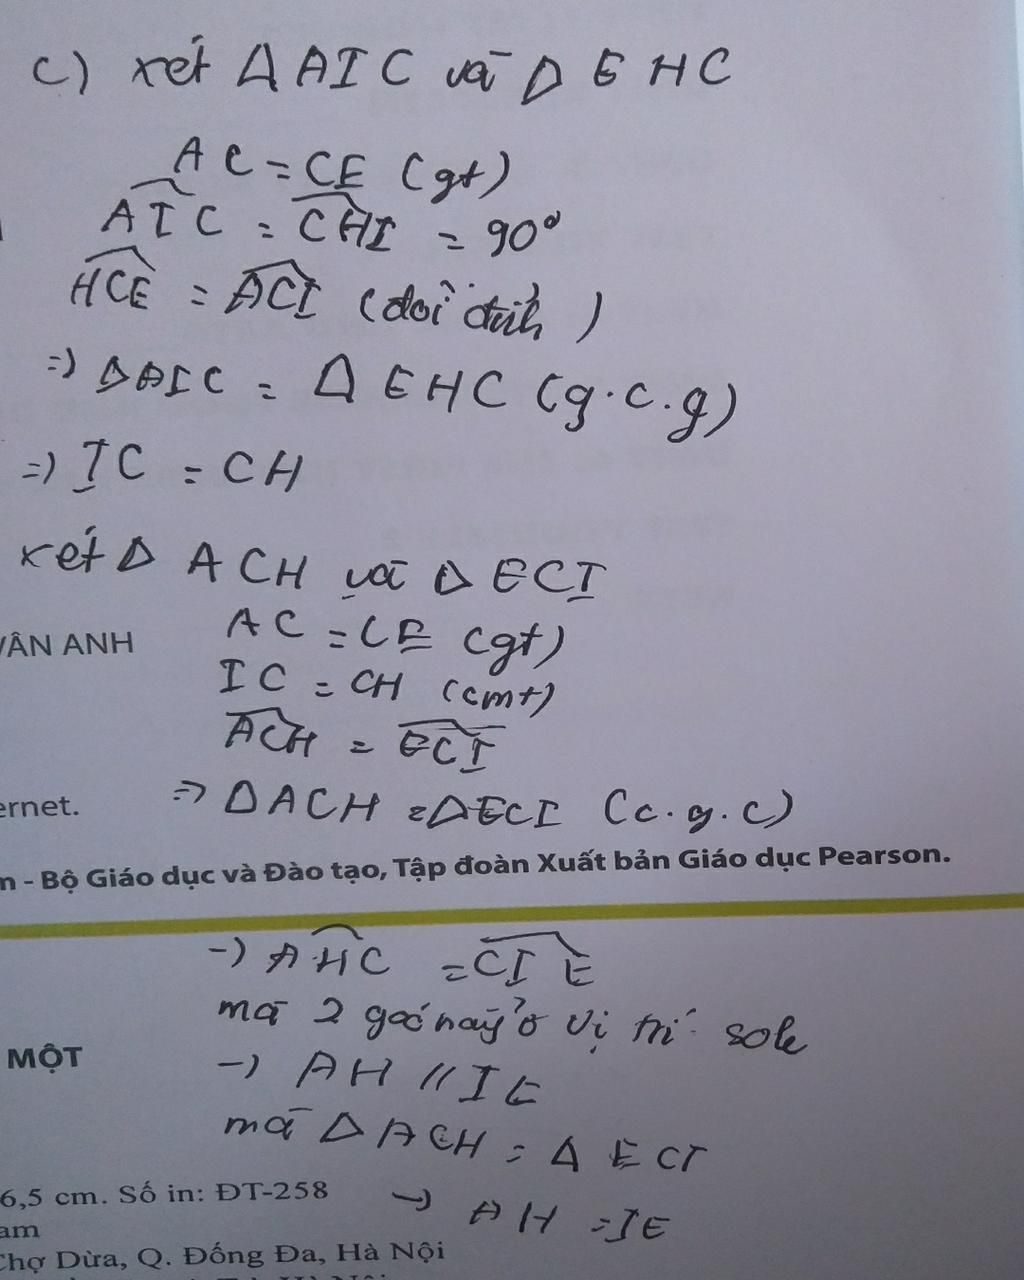 c) xét Δ AIC và Δ EHC
AC = CE (gt)
AIC = CHI = 90°
HCE = ACI (đối đỉnh)
=) ΔAIC = Δ EHC (g.c.g)
=) IC = CH
xét Δ ACH và Δ ECI
AC = CE (gt)
VÂN ANH
IC = CH (cmt)
ACH = ECI
=> ΔACH = ΔECI (c.g.c)
ernet.
n - Bộ Giáo dục và Đào tạo, Tập đoàn Xuất bản Giáo dục Pearson.
-) AHC = CIE
mà 2 góc này ở vị trí sole
MỘT
-) AH // IE
mà Δ ACH = Δ ECI
6,5 cm. Số in: ĐT-258
-) AH = IE
am
Chợ Dừa, Q. Đống Đa, Hà Nội